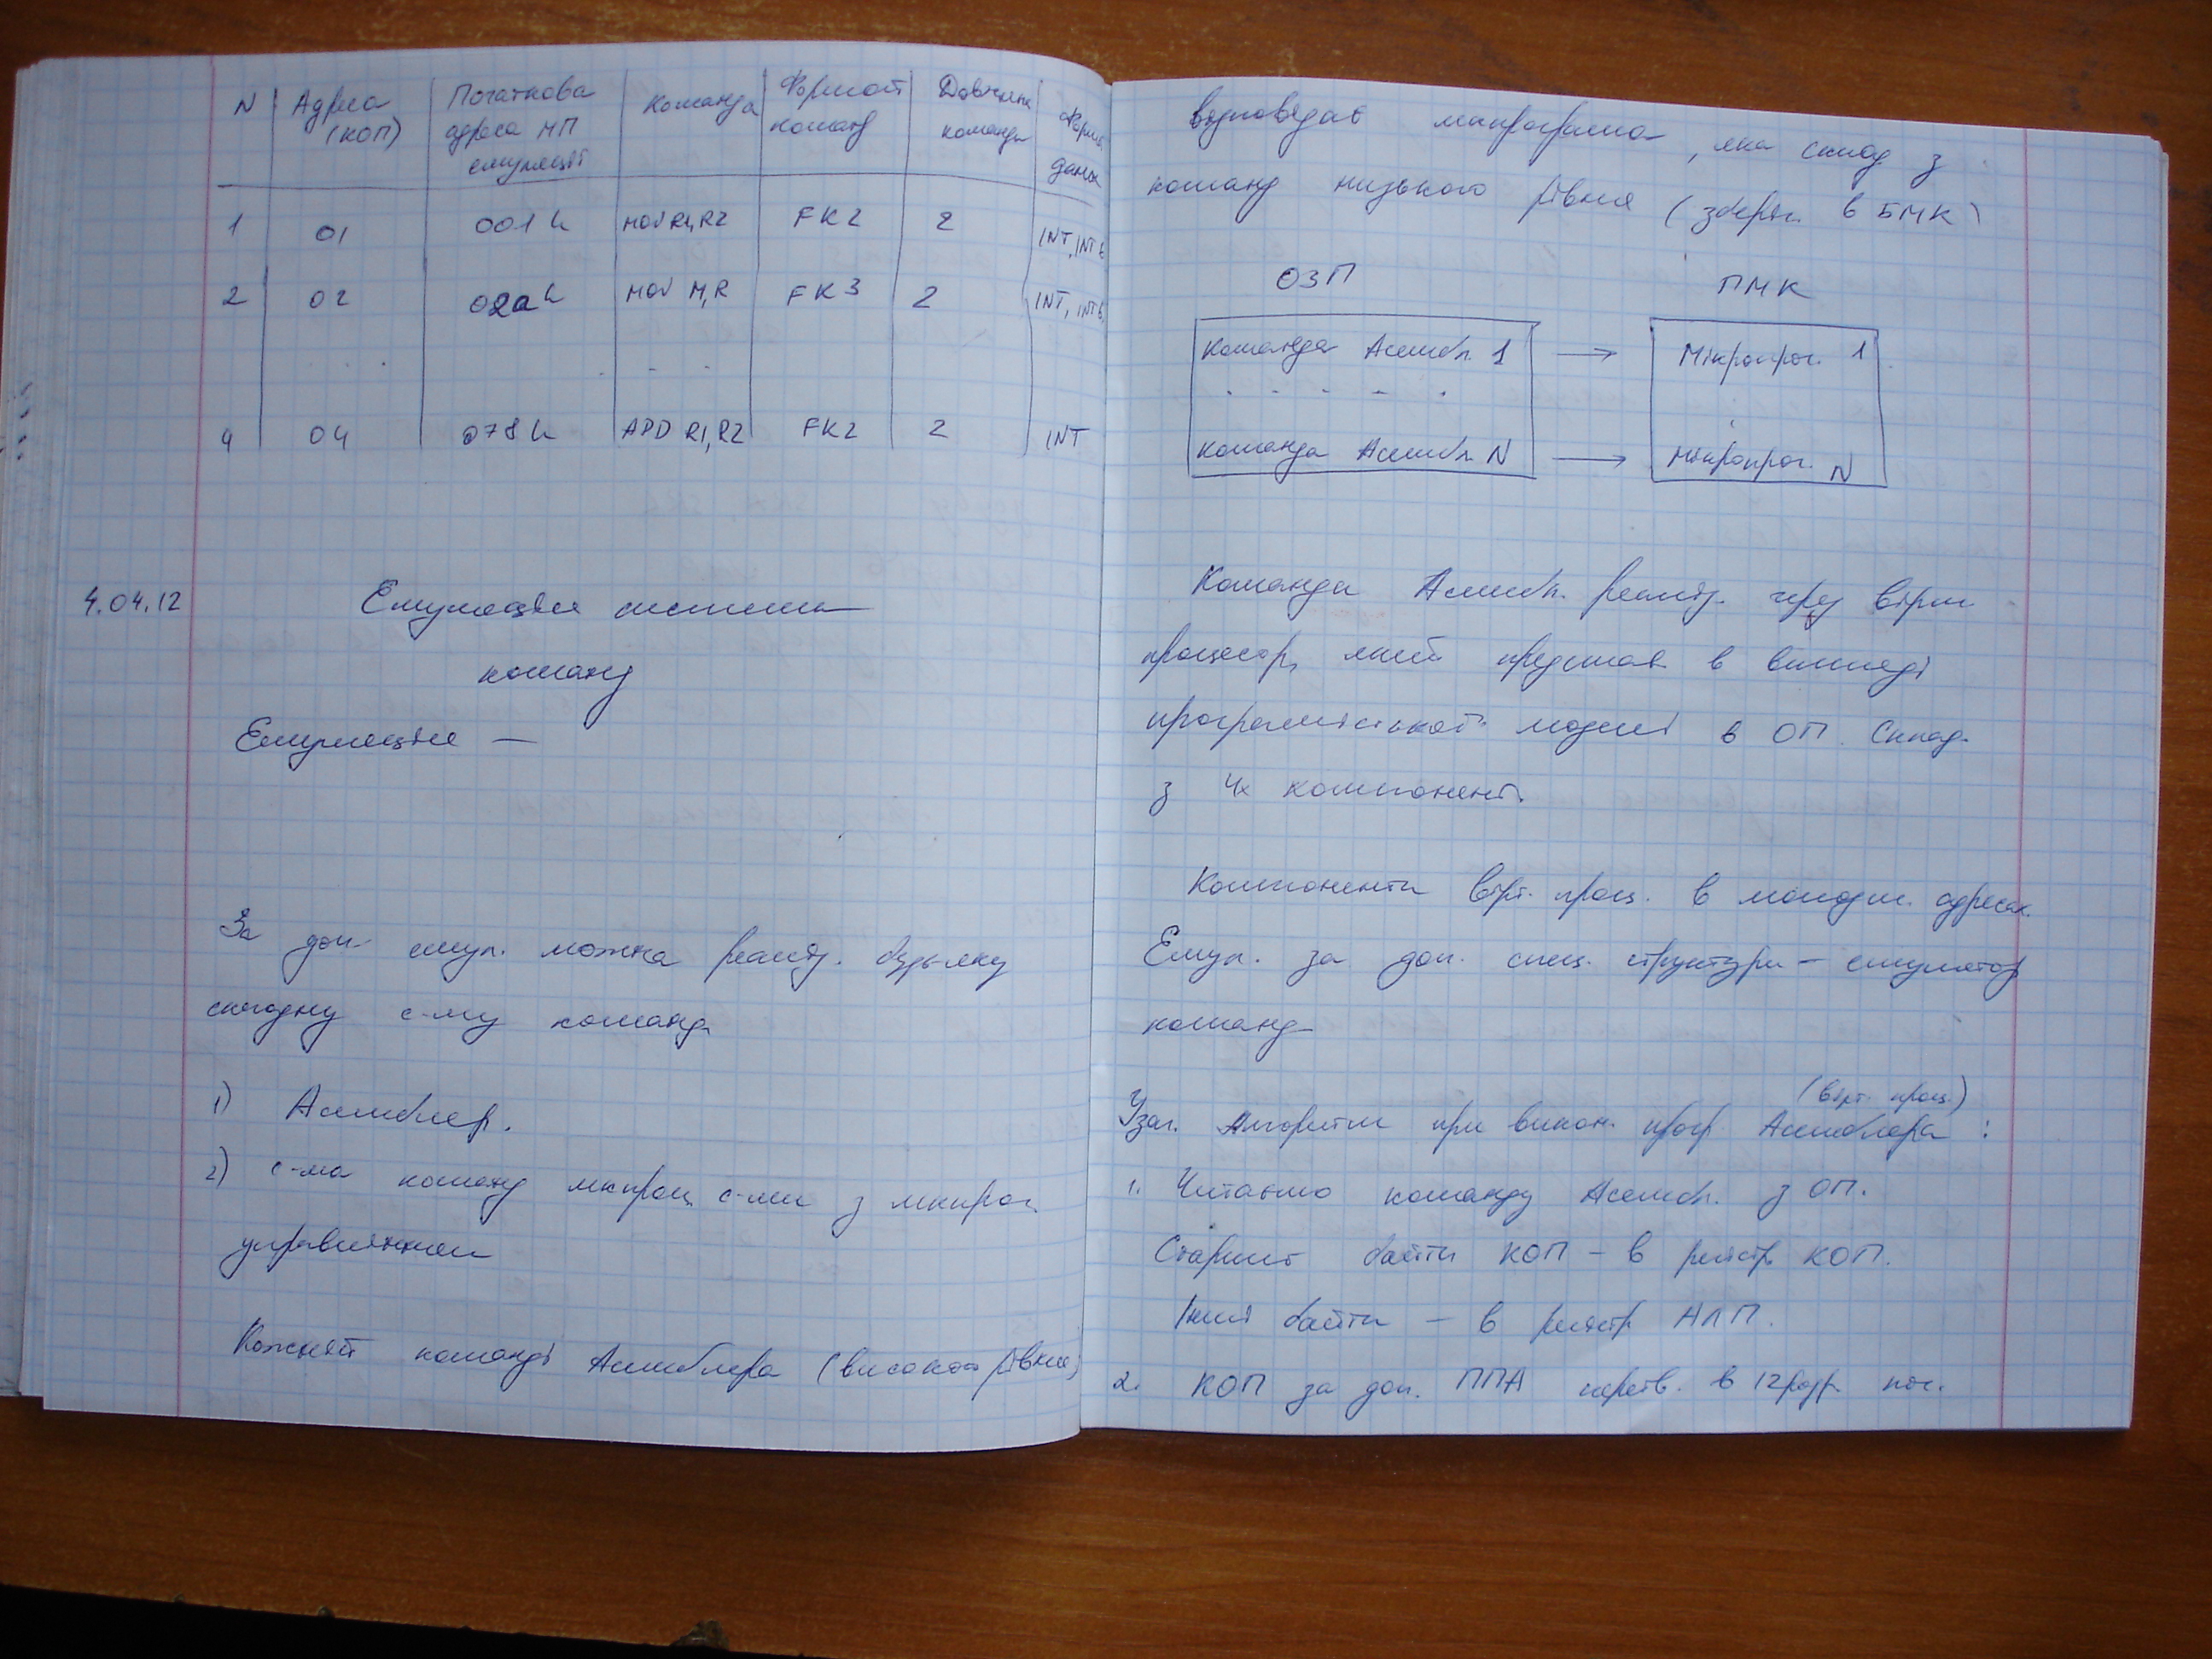 N | Адреса (КОП) | Початкова адреса МП емуляції | Команда | Формат команд | Довжина команди | Форм. даних
1 | 01 | 001h | MOV R1,R2 | FK2 | 2 | INT, INT б
2 | 02 | 02ah | MOV M,R | FK3 | 2 | INT, INT б.
4 | 04 | 078h | ADD R1,R2 | FK2 | 2 | INT
4.04.12
Емуляція системи
команд
Емуляція —
За доп. емул. можна реаліз. будь-яку
складну с-му команд
1) Асемблер.
2) с-ма команд мкпроц с-ми з мкпрог.
управлінням
Кожній команді Асемблера (високого рівня)
відповідає мікпрограма, яка склад з
команд низького рівня (зберіг. в БМК)
ОЗП ПМК
Команда Асембл. 1 → Мікропрог. 1
Команда Асембл. N → Мікропрог. N
Команди Асембл. реаліз. через вірт.
процесор, який представ. в вигляді
програмістської моделі в ОП. Склад.
з 4х компонент.
Компоненти вірт. проц. в молодш. адресах.
Емул. за доп. спец. структури – емулятор
команд
(вірт. проц.)
Узаг. Алгоритм при викон. прогр Асемблера :
1. Читаємо команду Асембл. з ОП.
Старші байти КОП – в регістр КОП.
Інші байти – в регістр АЛП.
2. КОП за доп. ППА перетв. в 12розр. поч.